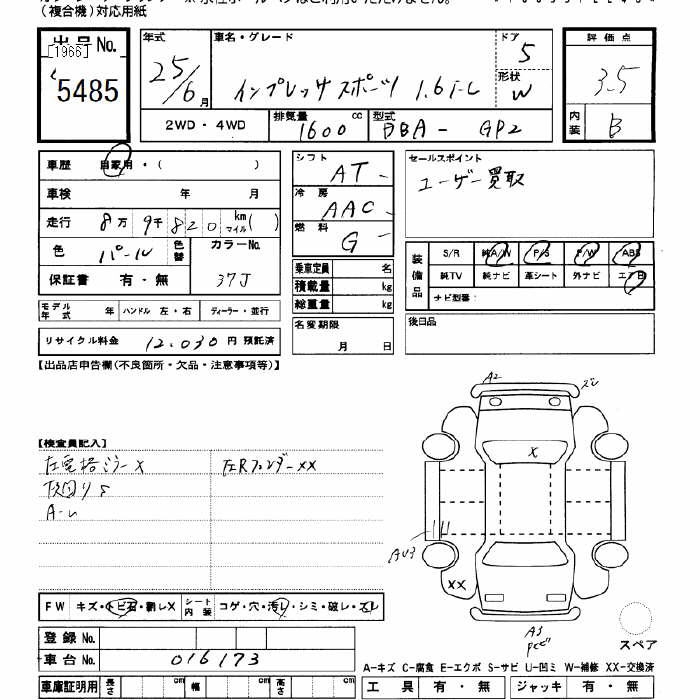 (複合機)対応用紙
出品No. [1966] 5485
年式 25/6月
車名・グレード インプレッサスポーツ 1.6i-L
ドア 5
形状 W
評価点 3.5
内装 B
2WD・4WD 排気量 1600cc 型式 DBA-GP2
車歴 自家用・( )
車検 年 月
走行 8万9千820 km マイル( )
色 パール 色替 カラーNo. 37J
保証書 有・無
モデル年式 年 ハンドル 左・右 ディーラー・並行
リサイクル料金 12,030円 預託済
シフト AT
冷房 AAC
燃料 G
乗車定員 名
積載量 kg
総重量 kg
名変期限 月 日
セールスポイント
ユーザー買取
装備品 S/R 純A/W P/S P/W ABS
純TV 純ナビ 革シート 外ナビ エアB
ナビ型番:
後日品
【出品店申告欄(不良箇所・欠品・注意事項等)】
【検査員記入】
左電格ミラーX 左RフェンダーXX
A-し
A2 ズレ
X
AU3
XX
A3
スペア
FW キズ・トビ石・割レX シート内装 コゲ・穴・汚レ・シミ・破レ・スレ
登録No.
車台No. 016173
車庫証明用 長さ cm 幅 cm 高さ cm
A-キズ C-腐食 E-エクボ S-サビ U-凹ミ W-補修 XX-交換済
工具 有・無 ジャッキ 有・無